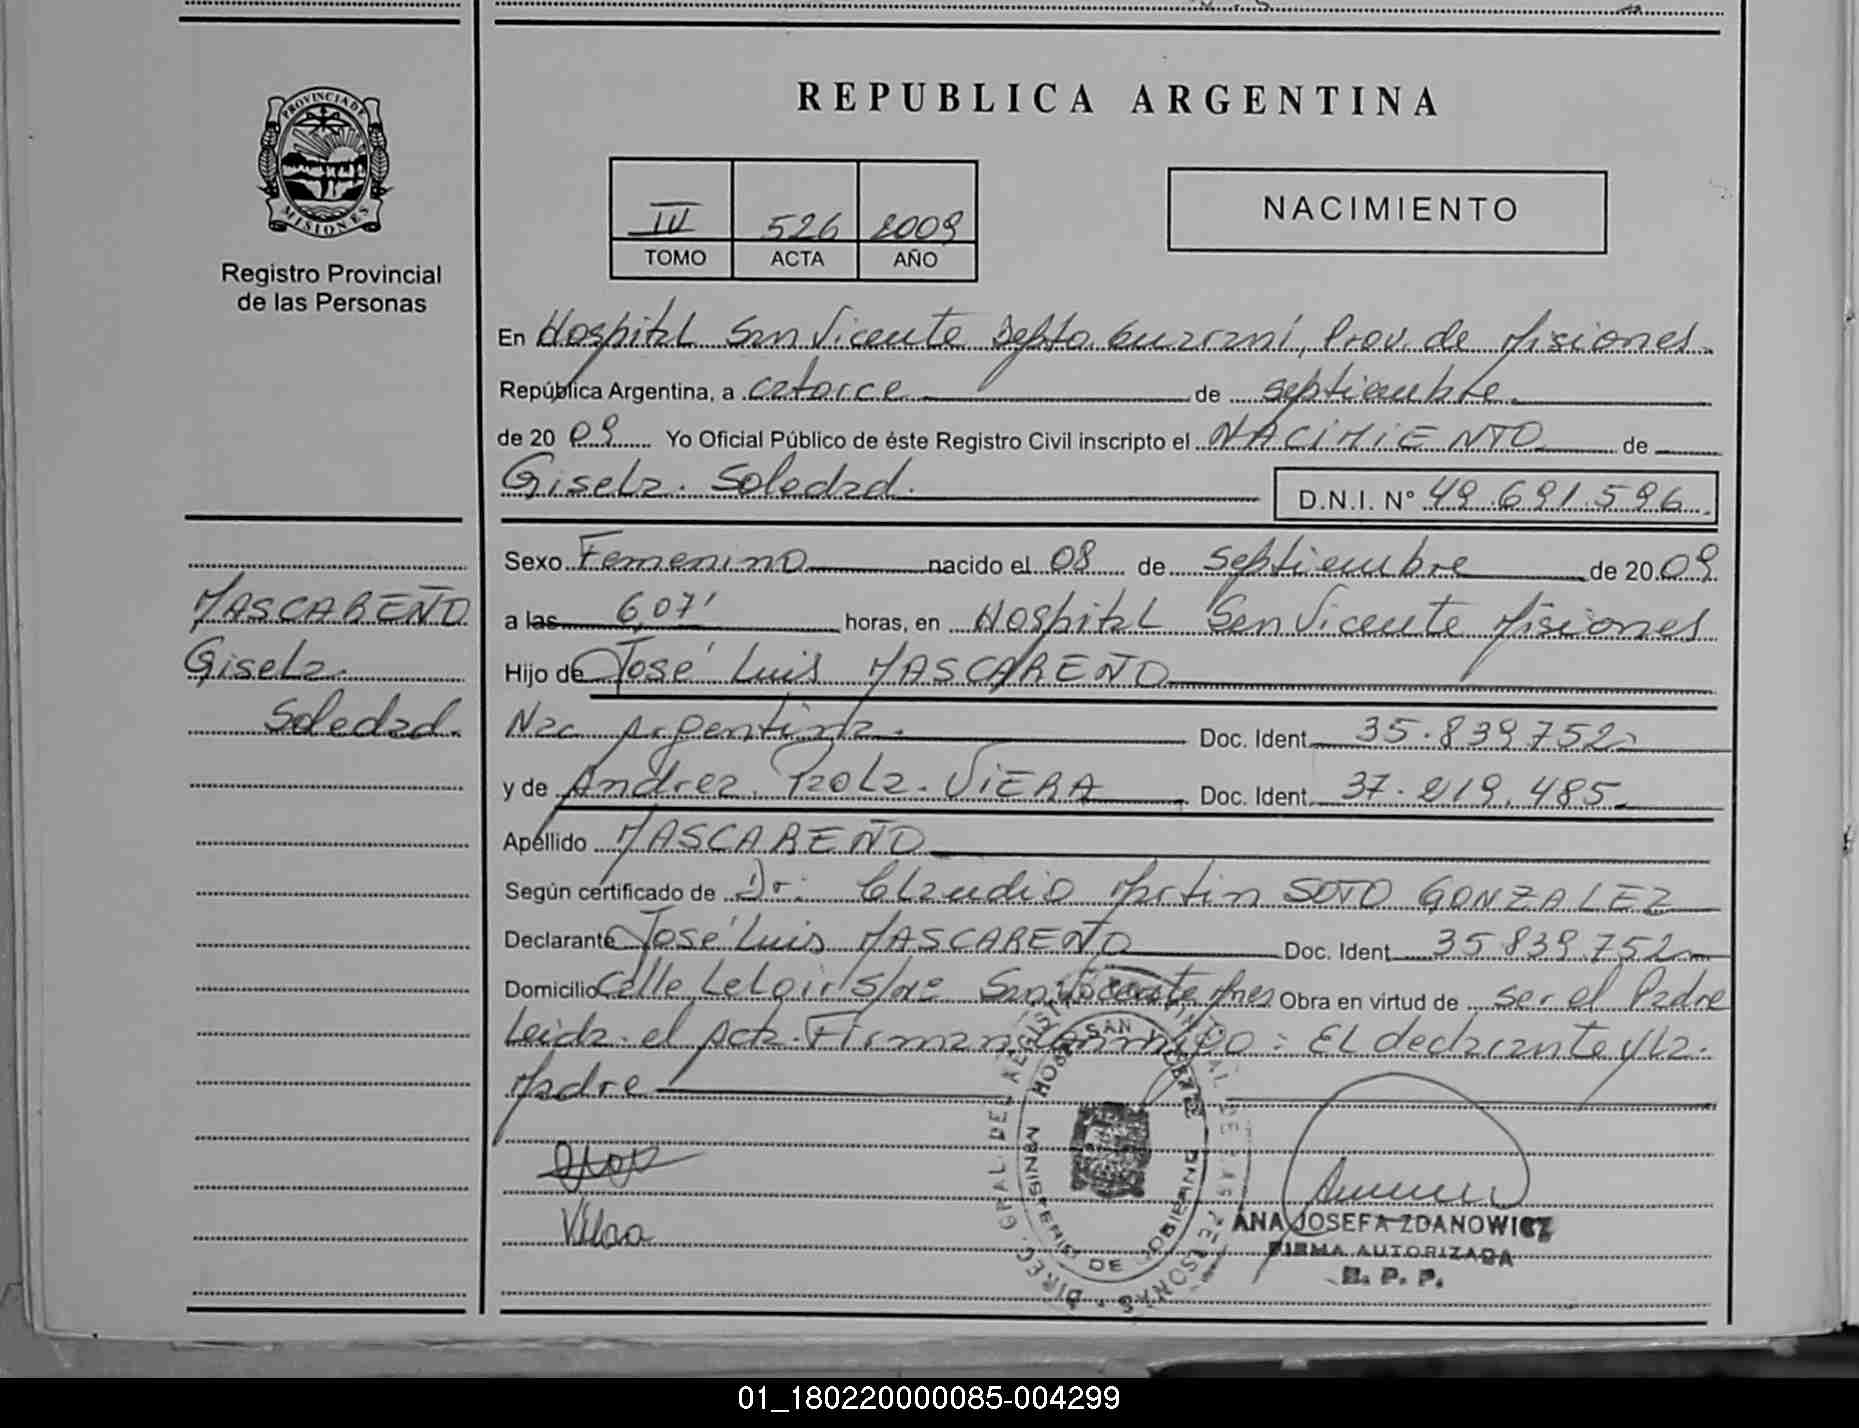 REPUBLICA ARGENTINA
PROVINCIA DE MISIONES
Registro Provincial
de las Personas
IV 526 2009
TOMO ACTA AÑO
NACIMIENTO
En Hospital San Vicente Depto Guaraní, Prov. de Misiones
República Argentina, a catorce de septiembre
de 2009 Yo Oficial Público de éste Registro Civil inscripto el NACIMIENTO de
Gisela Soledad. D.N.I. Nº 49.691.596
Sexo Femenino nacido el 08 de septiembre de 2009
a las 6,07' horas, en Hospital San Vicente Misiones
Hijo de José Luis MASCAREÑO
Nac Argentina. Doc. Ident. 35.839.752
y de Andrea Paola VIERA Doc. Ident. 37.219.485
Apellido MASCAREÑO
Según certificado de Dr. Claudio Martin SOTO GONZALEZ
Declarante José Luis MASCAREÑO Doc. Ident. 35.839.752
Domicilio Calle Leloir s/nº San Vicente Mnes Obra en virtud de ser el Padre
Leida el Acta Firman conmigo: El declarante y la
Madre
MASCAREÑO
Gisela
Soledad.
DIREC. GRAL DEL REGISTRO PROVINCIAL DE LAS PERSONAS
HOSP SAN VICENTE
MINISTERIO DE GOBIERNO
ANA JOSEFA ZDANOWICZ
FIRMA AUTORIZADA
R. P. P.
01_180220000085-004299